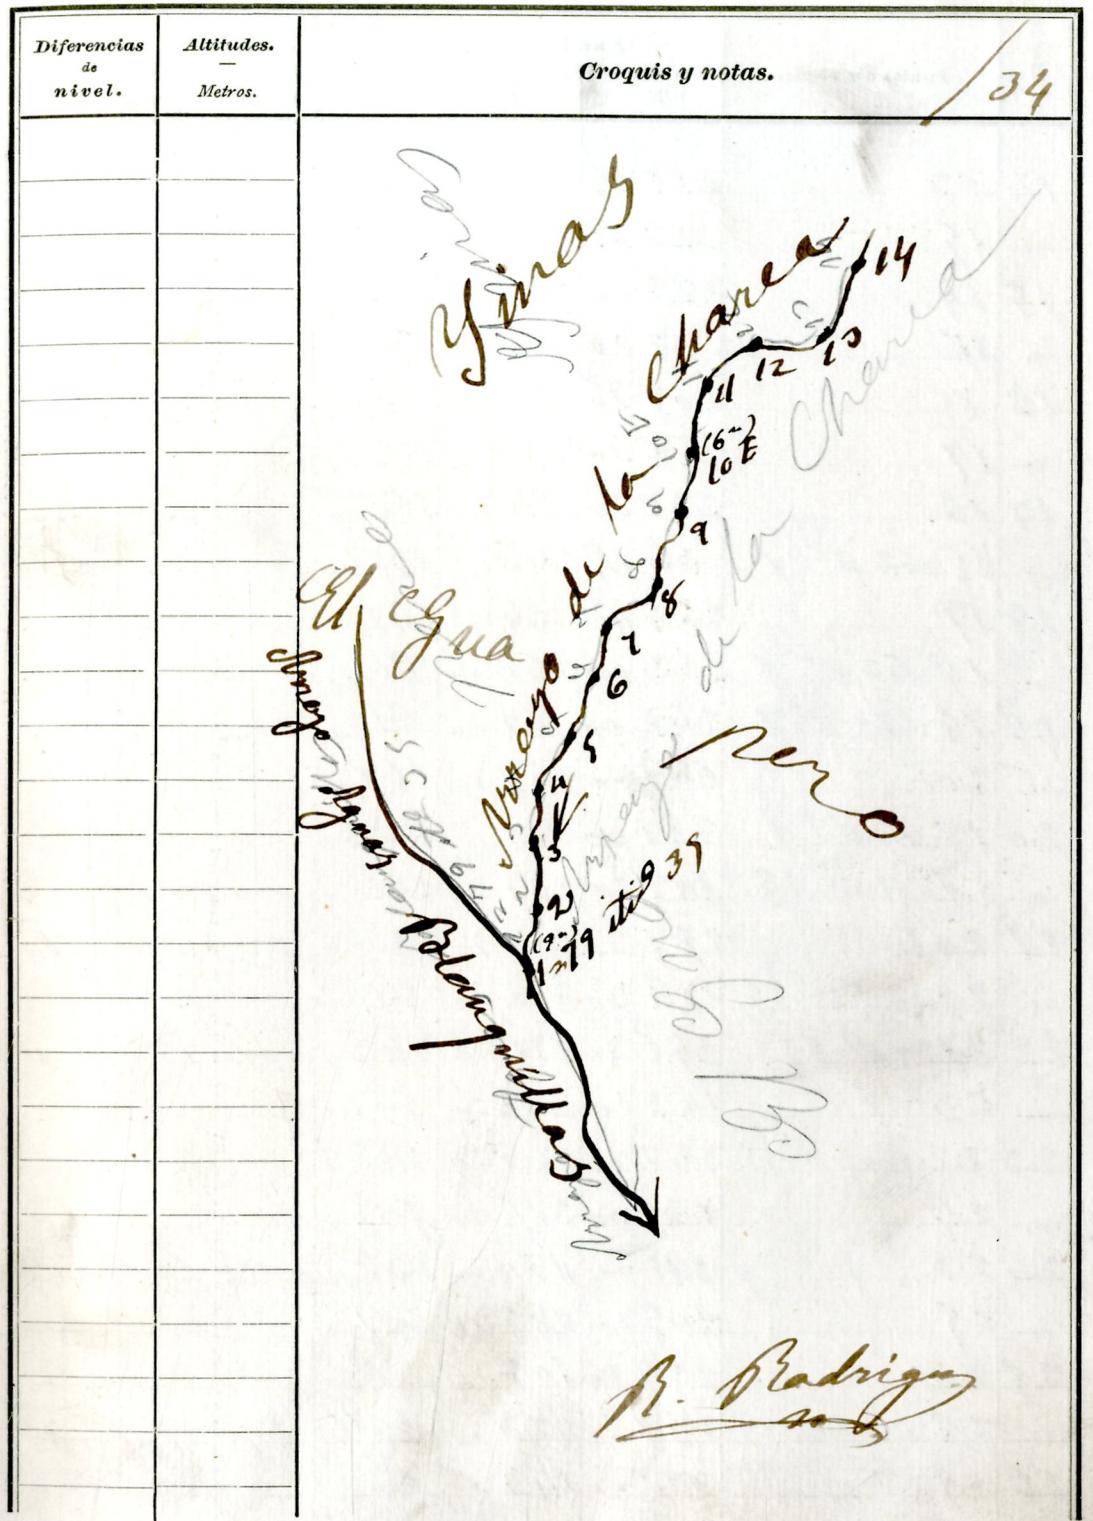 Diferencias
de
nivel.
Altitudes.
—
Metros.
Croquis y notas.
/34
Yinas
Arroyo de la Charca
14
13
12
11
(6ª)
10 E
9
8
7
6
5
4
3
2
(9ª)
1 n 19 itiº 39
El Gua
rero
Arroyo Aguas Blanquillas
Arroyo de la Charca
El Gua
R. Rodriguez